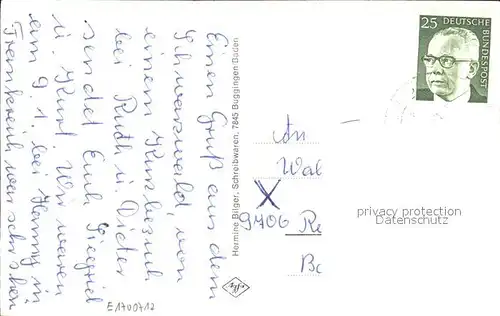 Einen Gruß aus dem
Schwarzwald, von
einem Kurzbesuch
bei Ruth u. Dieter
sendet Euch Siegried
u. Kurt. Wir waren
am 9. 1. bei Hanny in
Frankreich war sehr schön
Hermine Bilger, Schreibwaren, 7845 Buggingen/Baden
25 DEUTSCHE
BUNDESPOST
An
Wal
X
9706 Re
Bo
privacy protection
Datenschutz
E1700712